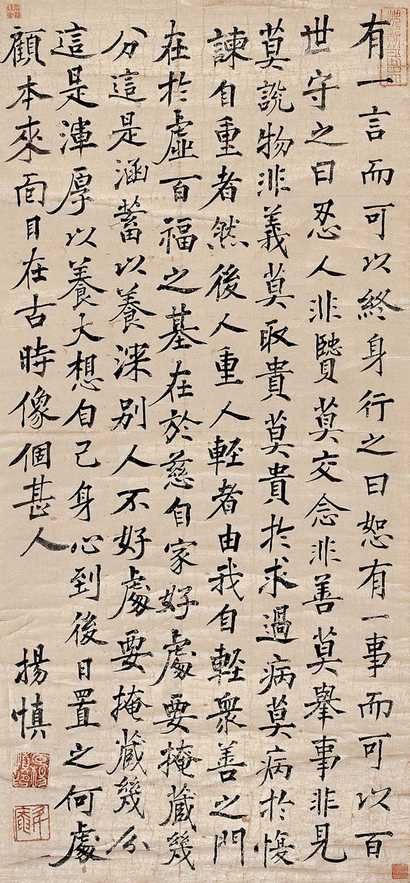 有一言而可以終身行之曰恕有一事而可以百
世守之曰忍人非賢莫交念非善莫舉事非見
莫說物非義莫取貴莫貴於求過病莫病於愎
諫自重者然後人重人輕者由我自輕衆善之門
在於虛百福之基在於慈自家好處要掩藏幾
分這是涵蓄以養深別人不好處要掩藏幾分
這是渾厚以養大想自己身心到後日置之何處
顧本來面目在古時像個甚人
楊慎